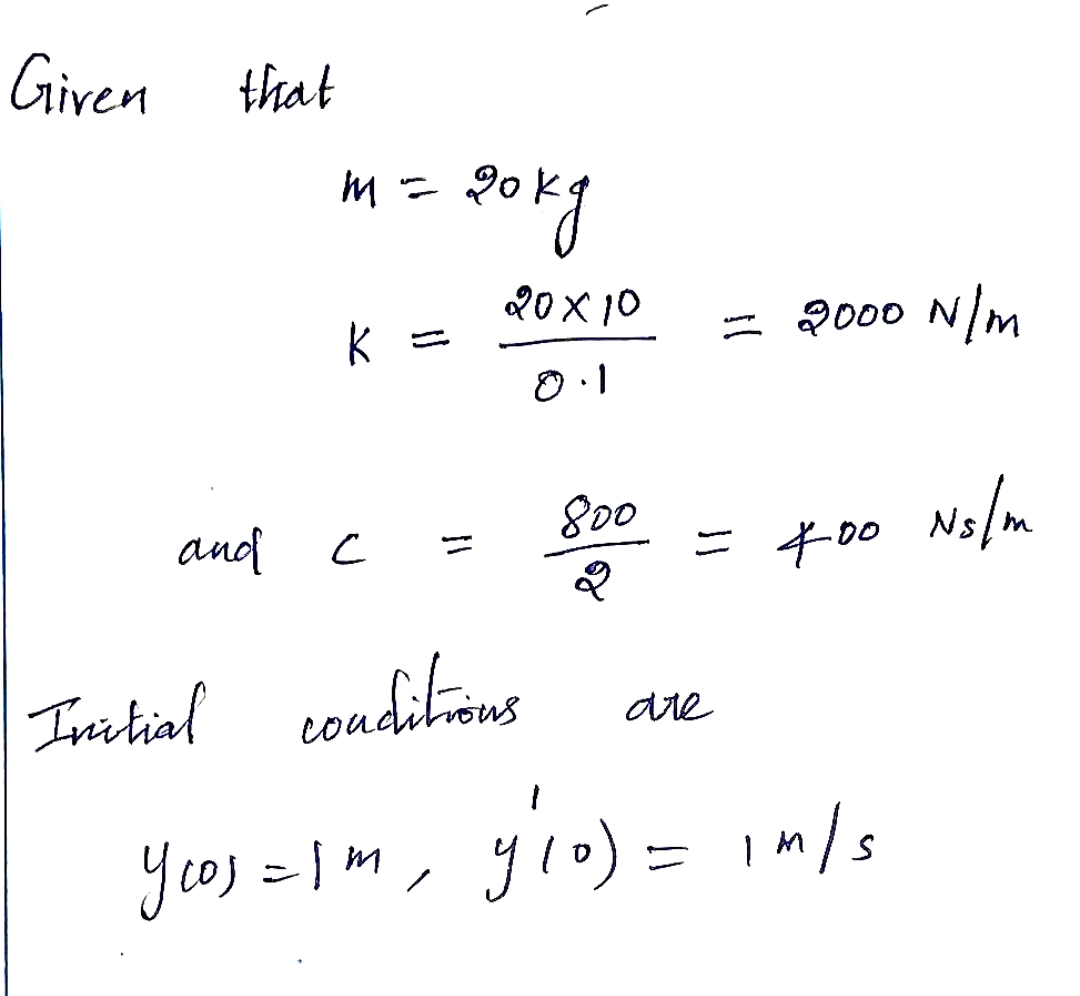 Given that
m = 20 kg
K = 20 x 10 / 0.1 = 2000 N/m
and c = 800 / 2 = 400 Ns/m
Initial conditions are
y(0) = 1 m, y'(0) = 1 m/s